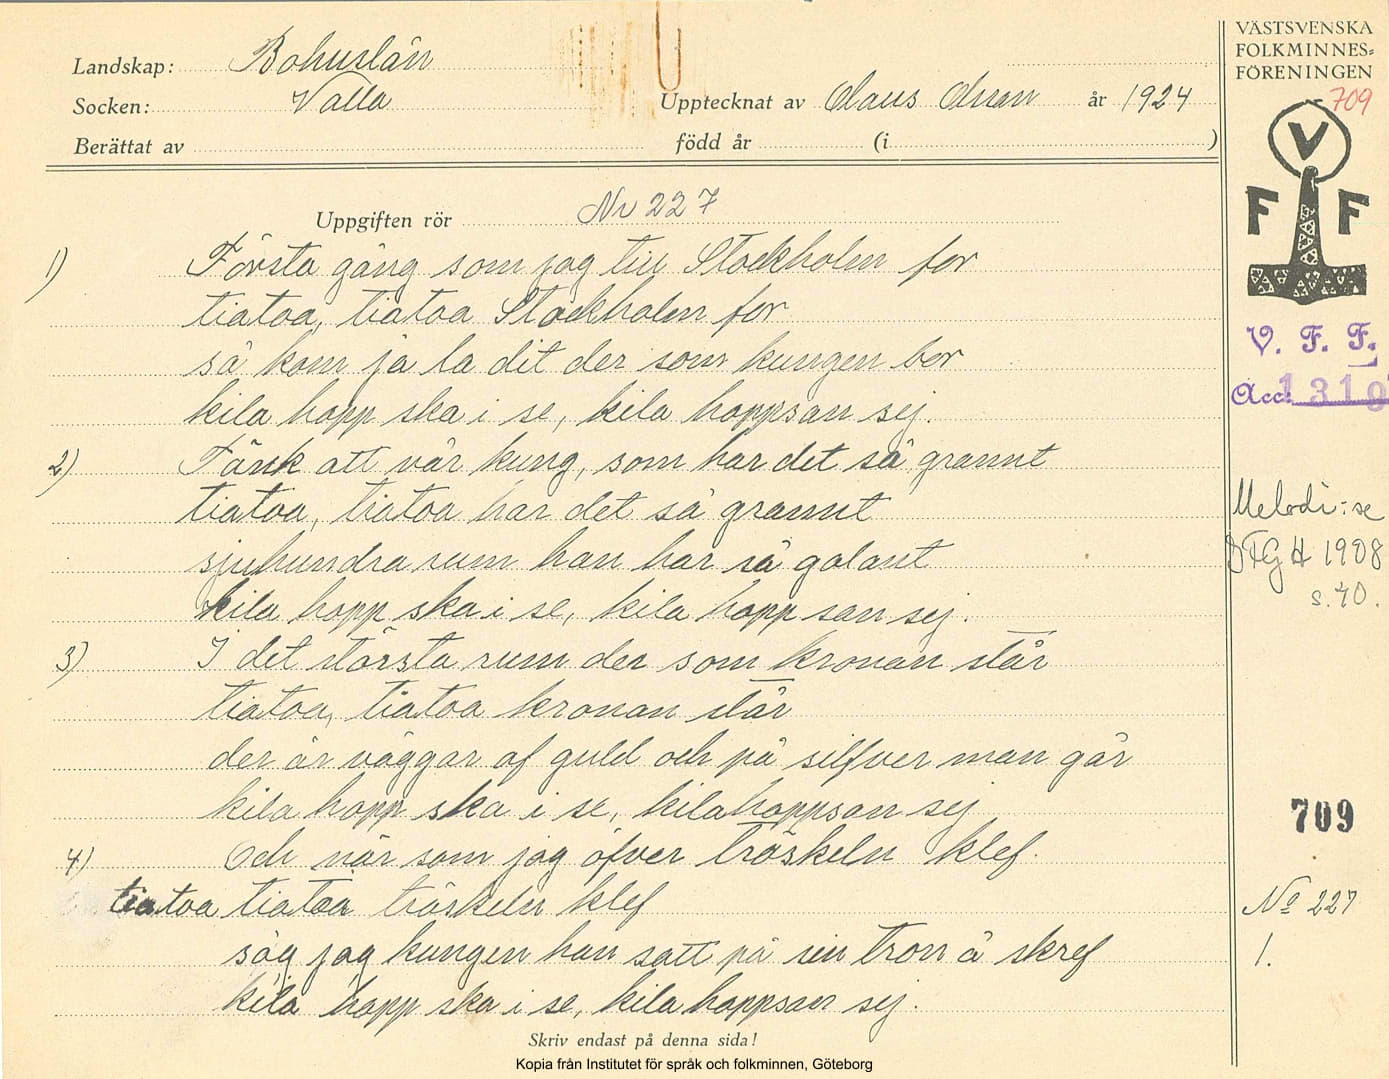 Landskap: Bohuslän
Socken: Valla
Upptecknat av Claus Olsson år 1924
Berättat av
född år (i )
VÄSTSVENSKA
FOLKMINNES=
FÖRENINGEN
709
V
F F
V. F. F.
Acc: 1319
Uppgiften rör Nr 227
1) Första gång som jag till Stockholm for
tiatoa, tiatoa Stockholm for
så kom ja la dit der som kungen bor
kila hopp ska i se, kila hoppsan sej.
2) Tänk att vår kung, som har det så grannt
tiatoa, tiatoa har det så grannt
sjuhundra rum han har så galant
kila hopp ska i se, kila hopp san sej.
3) I det största rum der som kronan står
tiatoa, tiatoa kronan står
der är väggar af guld och på silfver man går
kila hopp ska i se, kila hoppsan sej
4) Och när som jag öfver tröskeln klef.
tiatoa tiatoa tröskeln klef
såg jag kungen han satt på sin tron å skref
kila hopp ska i se, kila hoppsan sej.
Melodi: se
FGH 1908
s. 40.
709
No 227
1.
Skriv endast på denna sida!
Kopia från Institutet för språk och folkminnen, Göteborg